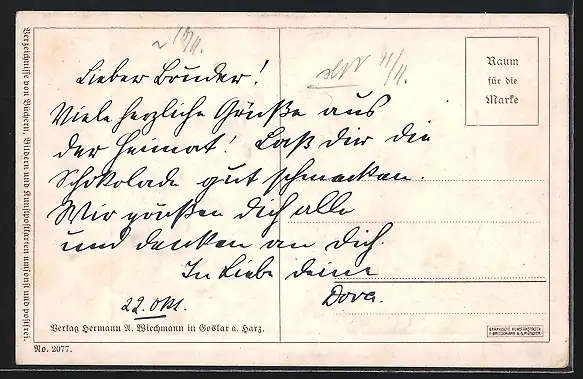 Verzeichnisse von Büchern, Bildern und Kunstpostkarten umsonst und postfrei.
Raum
für die
Marke
Lieber Bruder!
Viele herzliche Grüße aus
der Heimat! Laß dir die
Schokolade gut schmecken.
Wir grüßen dich alle
und denken an dich.
In Liebe deine
Dora.
22. Okt.
Verlag Hermann A. Wiechmann in Goslar a. Harz.
No. 2077.